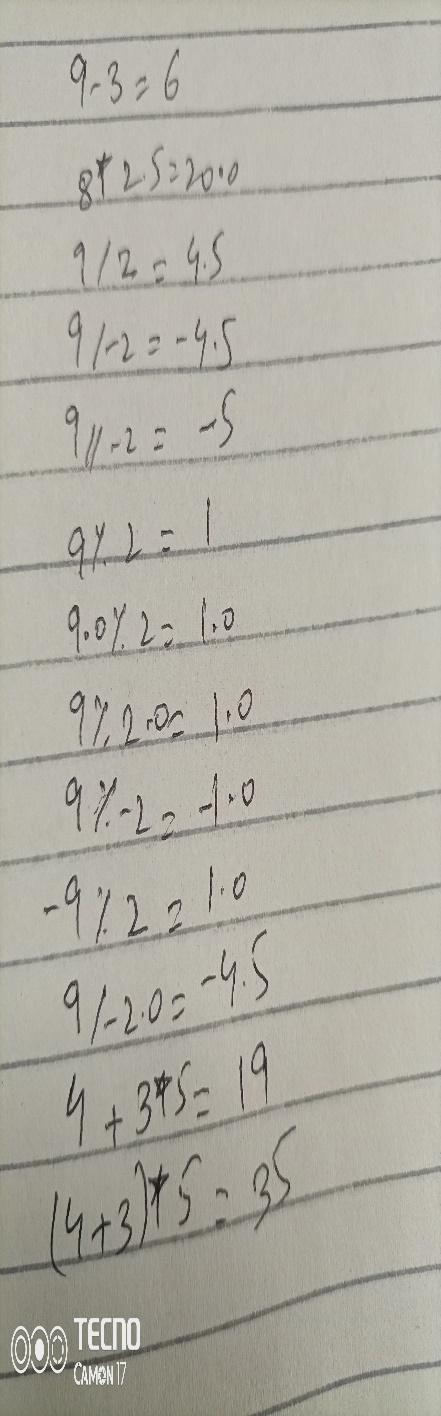 9-3=6
8*2.5=20.0
9/2=4.5
9/-2=-4.5
9//-2=-5
9%2=1
9.0%2=1.0
9%2.0=1.0
9%-2=-1.0
-9%2=1.0
9/-2.0=-4.5
4+3*5=19
(4+3)*5=35
TECNO
CAMON 17